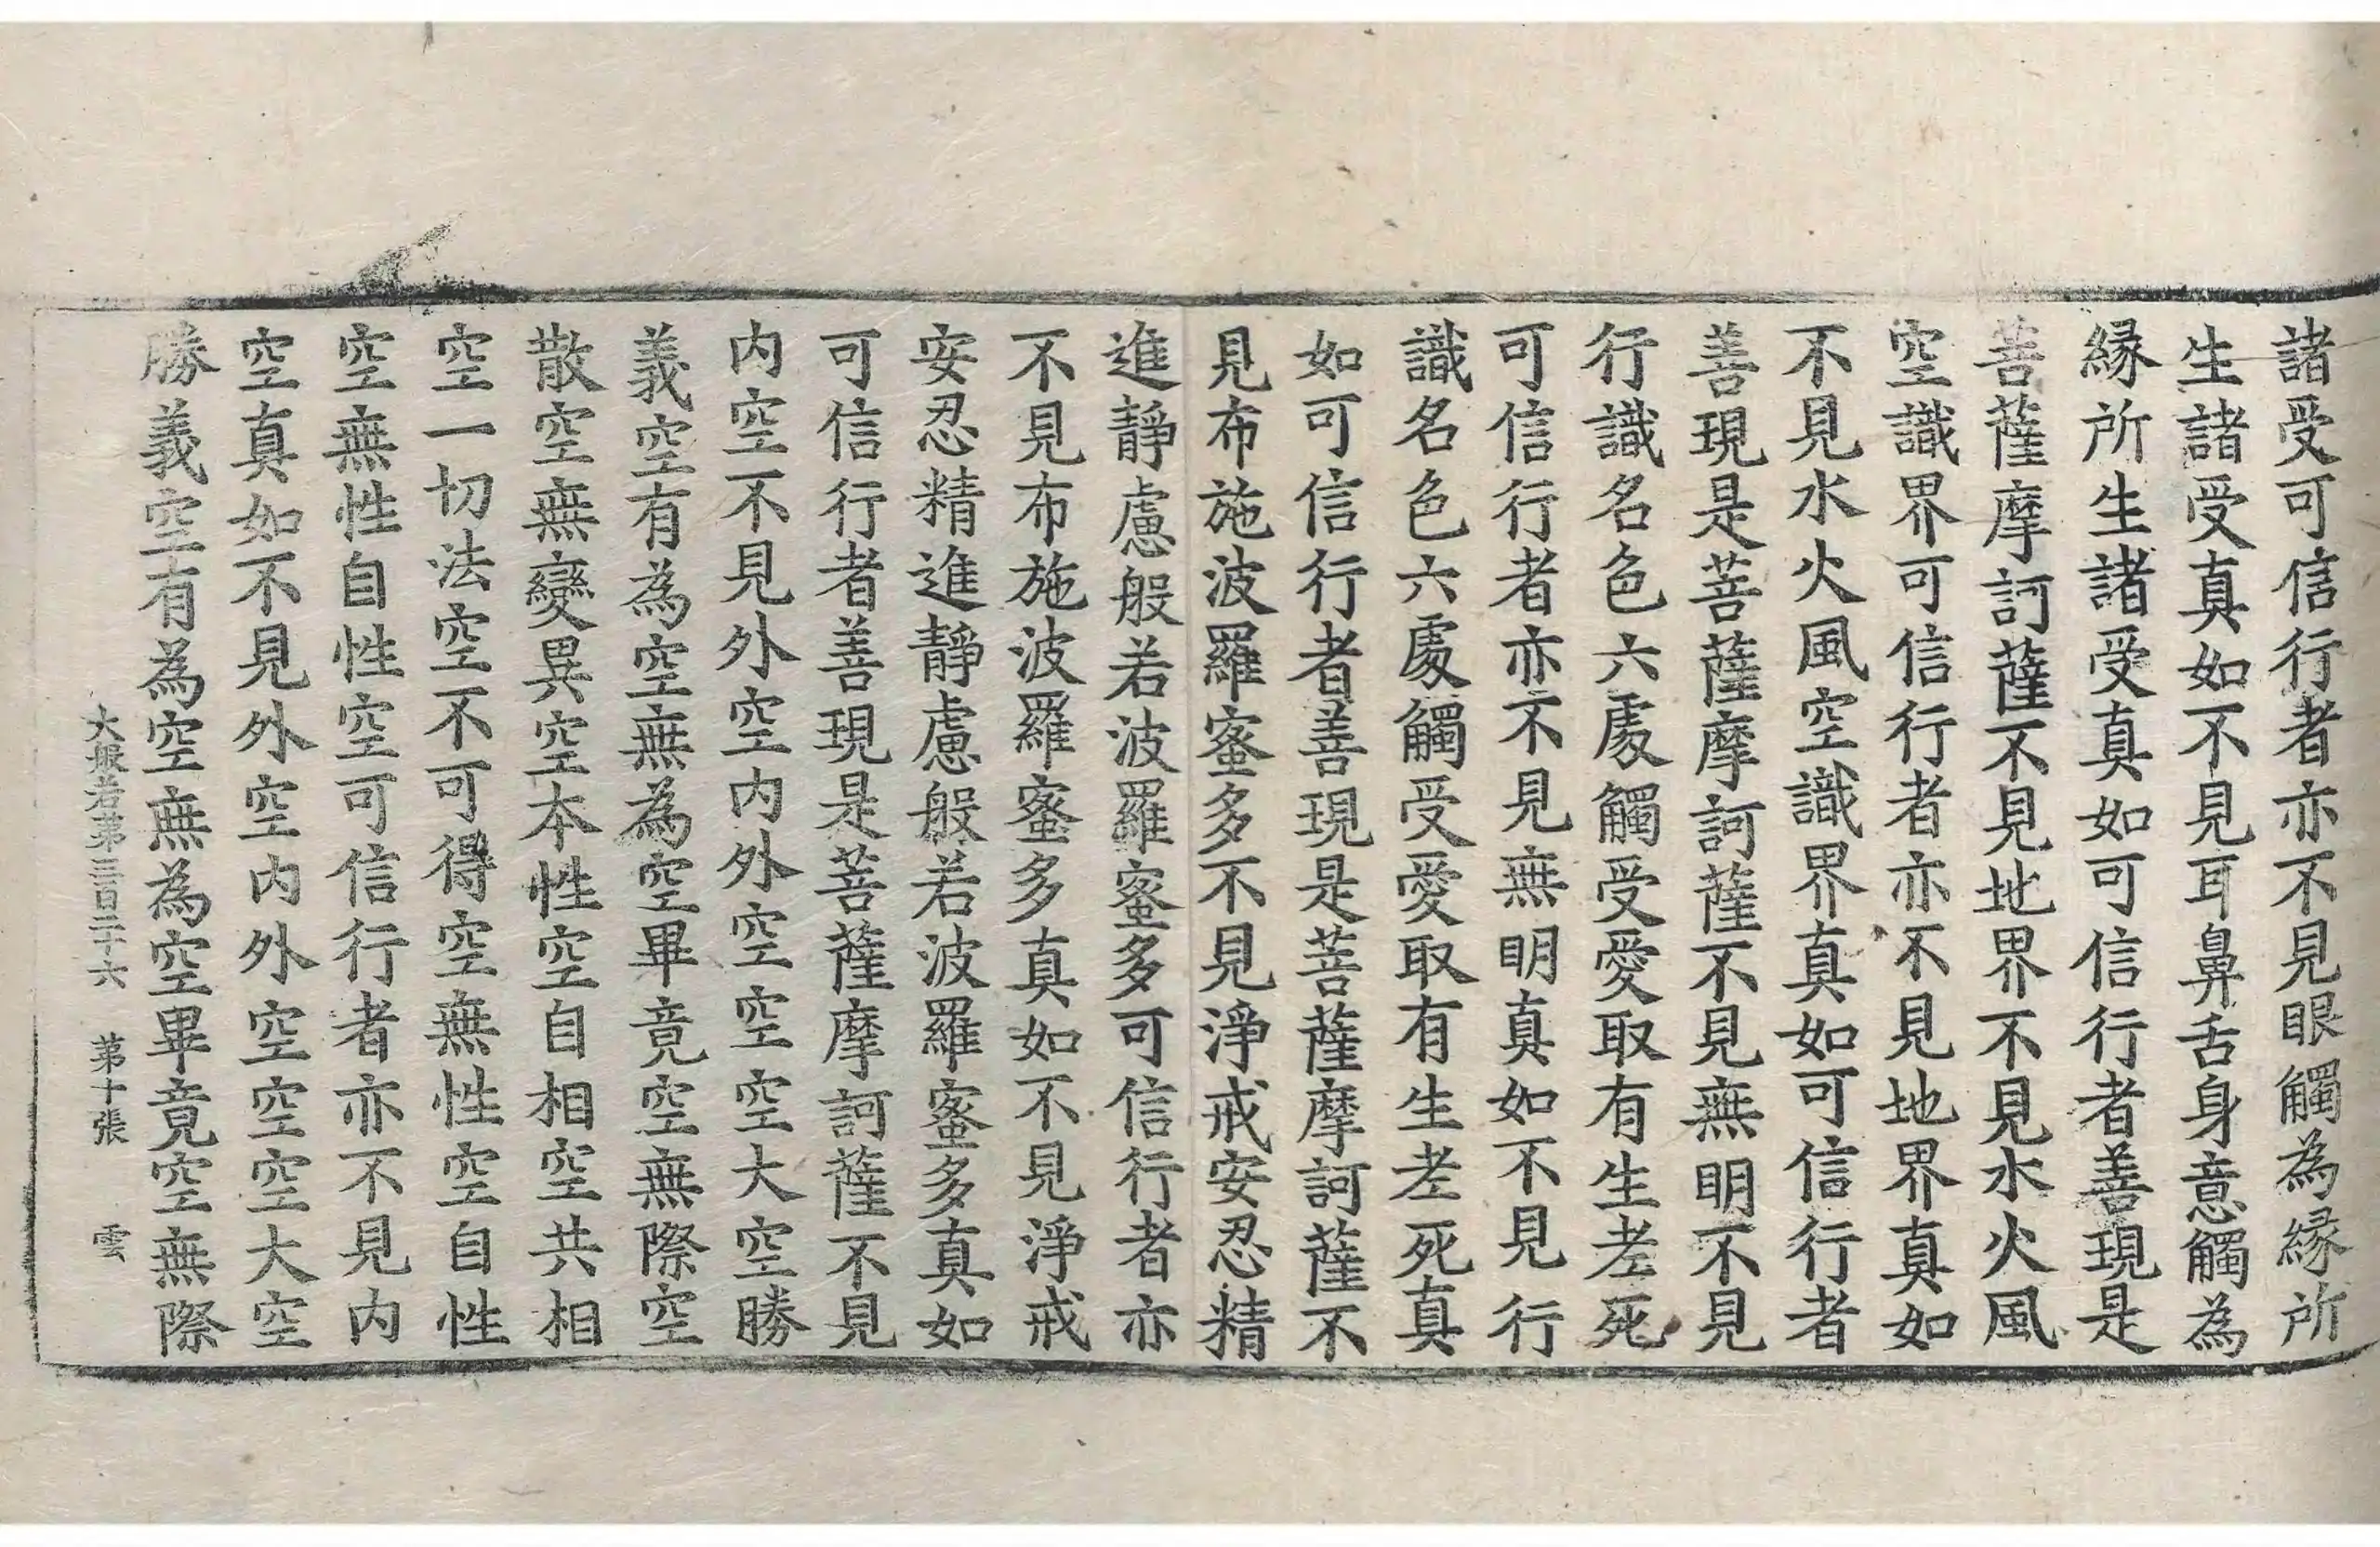 諸受可信行者亦不見眼觸為緣所
生諸受真如不見耳鼻舌身意觸為
緣所生諸受真如可信行者善現是
菩薩摩訶薩不見地界不見水火風
空識界可信行者亦不見地界真如
不見水火風空識界真如可信行者
善現是菩薩摩訶薩不見無明不見
行識名色六處觸受愛取有生老死
可信行者亦不見無明真如不見行
識名色六處觸受愛取有生老死真
如可信行者善現是菩薩摩訶薩不
見布施波羅蜜多不見淨戒安忍精
進靜慮般若波羅蜜多可信行者亦
不見布施波羅蜜多真如不見淨戒
安忍精進靜慮般若波羅蜜多真如
可信行者善現是菩薩摩訶薩不見
內空不見外空內外空空空大空勝
義空有為空無為空畢竟空無際空
散空無變異空本性空自相空共相
空一切法空不可得空無性空自性
空無性自性空可信行者亦不見內
空真如不見外空內外空空空大空
勝義空有為空無為空畢竟空無際
大般若第三百二十六 第十張 雲